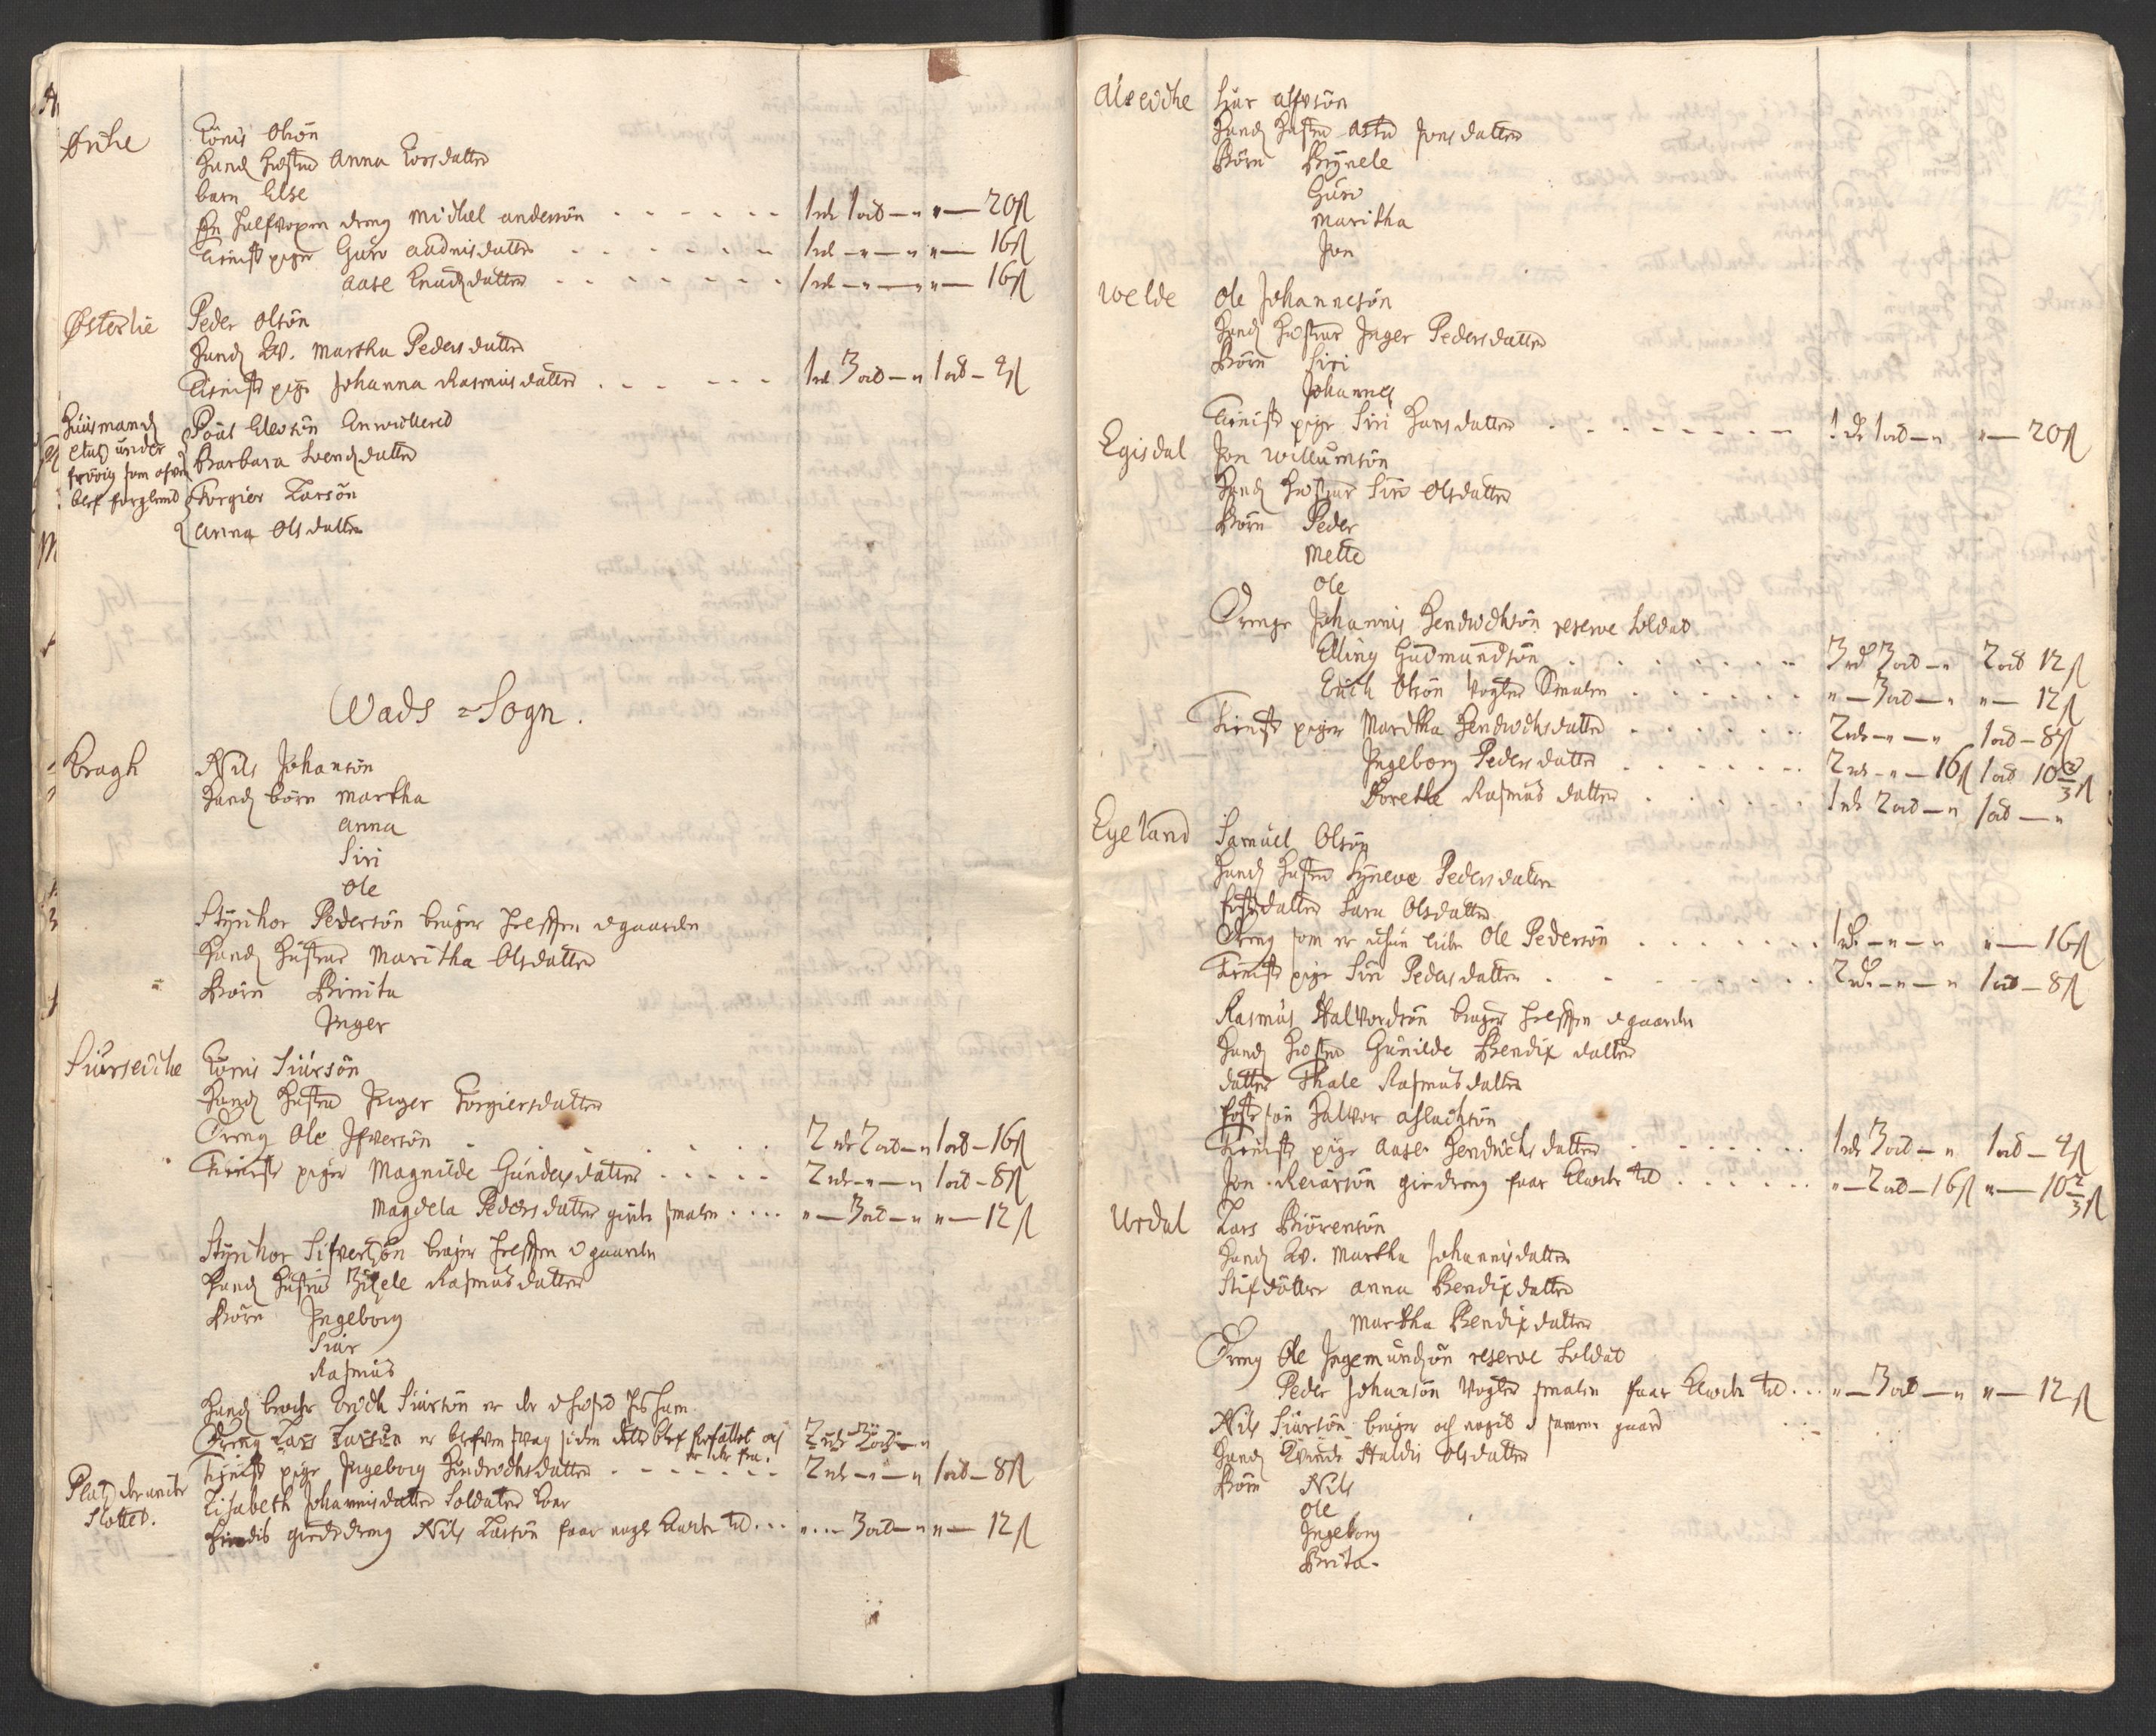 Ørche
Tönis Olsön
Hands Hustru Anna Torsdatter
barn Else
En halfvoxen dreng Michel Andersön - - - - - - 1rdr 1ort — " " — 20 ß
Tieniste piger Guro Aadnisdatter - - - - - - 1rdr — " — " " — 16 ß
Aase Knudsdatter - - - - - - - 1rdr — " — " " — 16 ß
Østerlie
Peder Olsön
Hands Qv. Martha Pedersdatter
Tieniste pige Johanna Rasmusdatter - - - - - - 1rdr 3ort — " 1ort — 4 ß
Huusmands
under
som
blef forglemt
Poul
Barbara Svendsdatter
Torgier Larsön
Anna Olsdatter
Wads = Sogn.
Kragh
Nils Johansön
Hands börn Martha
Anna
Siri
Ole
Styrchor Pedersön bruger helfften i gaarden
Hands Hustrue Maritha Olsdatter
Börn Birnita
Inger
Siurseiche
Tönis Siursön
Hands Hustru Inger Torgiersdatter
Dreng Ole Ifversön - - - - - - 2rdr 2ort — " 1ort — 16 ß
Tieniste piger Magnilde Gundersdatter - - - - - 2rdr — " — " 1ort — 8 ß
Magdela Pedersdatter giete smalen - - - - " — 3ort — " " — 12 ß
Styrchor Sifvertsön bruger helfften i gaarden
Hands Hustru Zizele Rasmusdatter
Börn Ingeborg
Siur
Rasmus
Hands broder Erich Siursön er
Dreng Lars Larsön er
er der fra.
2rdr 3ort — "
Tieniste pige Ingeborg Hendrichsdatter - - - - - - - 2rdr — " — " 1ort — 8 ß
Plads derunder
Slottet.
Lisabeth Johannisdatter Soldater
giede dreng Nils Larsön faar noget Klæder til - - - " - - - 3ort — " " — 12 ß
Alseiche
Siur Alfvsön
Hands Hustru Asta Jonsdatter
Börn Brynele
Guro
Maritha
Jon
Welde
Ole Johannesön
Hands Hustrue Inger Pedersdatter
Börn Siri
Johannes
Tieniste pige Siri Hansdatter - - - - - - - - 1dr 1ort — " " — 20 ß
Egisdal
Jon Willumsön
Hands Hustrue Siri Olsdatter
Börn Peder
Mette
Ole
Drenge Johannis Hendrichsön reserve Soldat
Elling Gudmundsön - - - - - - - 3rdr 3ort — " 2ort 12 ß
Erich Olsön vogter Smalen - - - - - - " — 3ort — " " — 12 ß
Tieniste piger Mardtha Hendrichsdatter - - - - - - 2rdr — " — " 1ort — 8 ß
Ingeborg Pedersdatter - - - - - - - 2rdr — " — 16 ß 1ort 10 2/3 ß
Dorethe Rasmus datter - - - - - - 1rdr 2ort — " 1ort — "
Egeland
Samuel Olsön
Hands Hustru Synneve Pedersdatter
Sara Olsdatter
Dreng som er Ole Pedersön - - - - - - - 1rdr — " — " " — 16 ß
Tieniste pige Siri Pedersdatter - - - - - - - 2rdr — " — " 1ort — 8 ß
Rasmus Halvordsön bruger helfften i gaarden
Hands Hustru Gunilde Bendix datter
datter Thale Rasmusdatter
foster sön Halvor Aslachsön
Tieniste pige Aase Hendrichs datter - - - - - - - 1rdr 3ort — " 1ort — 4 ß
Jon Reiarsön giedreng faar Klæder til - - - - - - " — 2ort — 16 ß " — 10 2/3 ß
Urdal
Lars Biörensön
Hands Qv. Martha Johannisdatter
Stifdötter Anna Bendixdatter
Martha Bendixdatter
Dreng Ole Ingemundsön reserve Soldat
Peder Johansön vogter smalen faar Klæder til - - - " — 3ort — " " — 12 ß
Nils Siursön bruger och noget i samme gaard
Hands Qvinde Haldis Olsdatter
Börn Nils
Ole
Ingeborg
Brita.